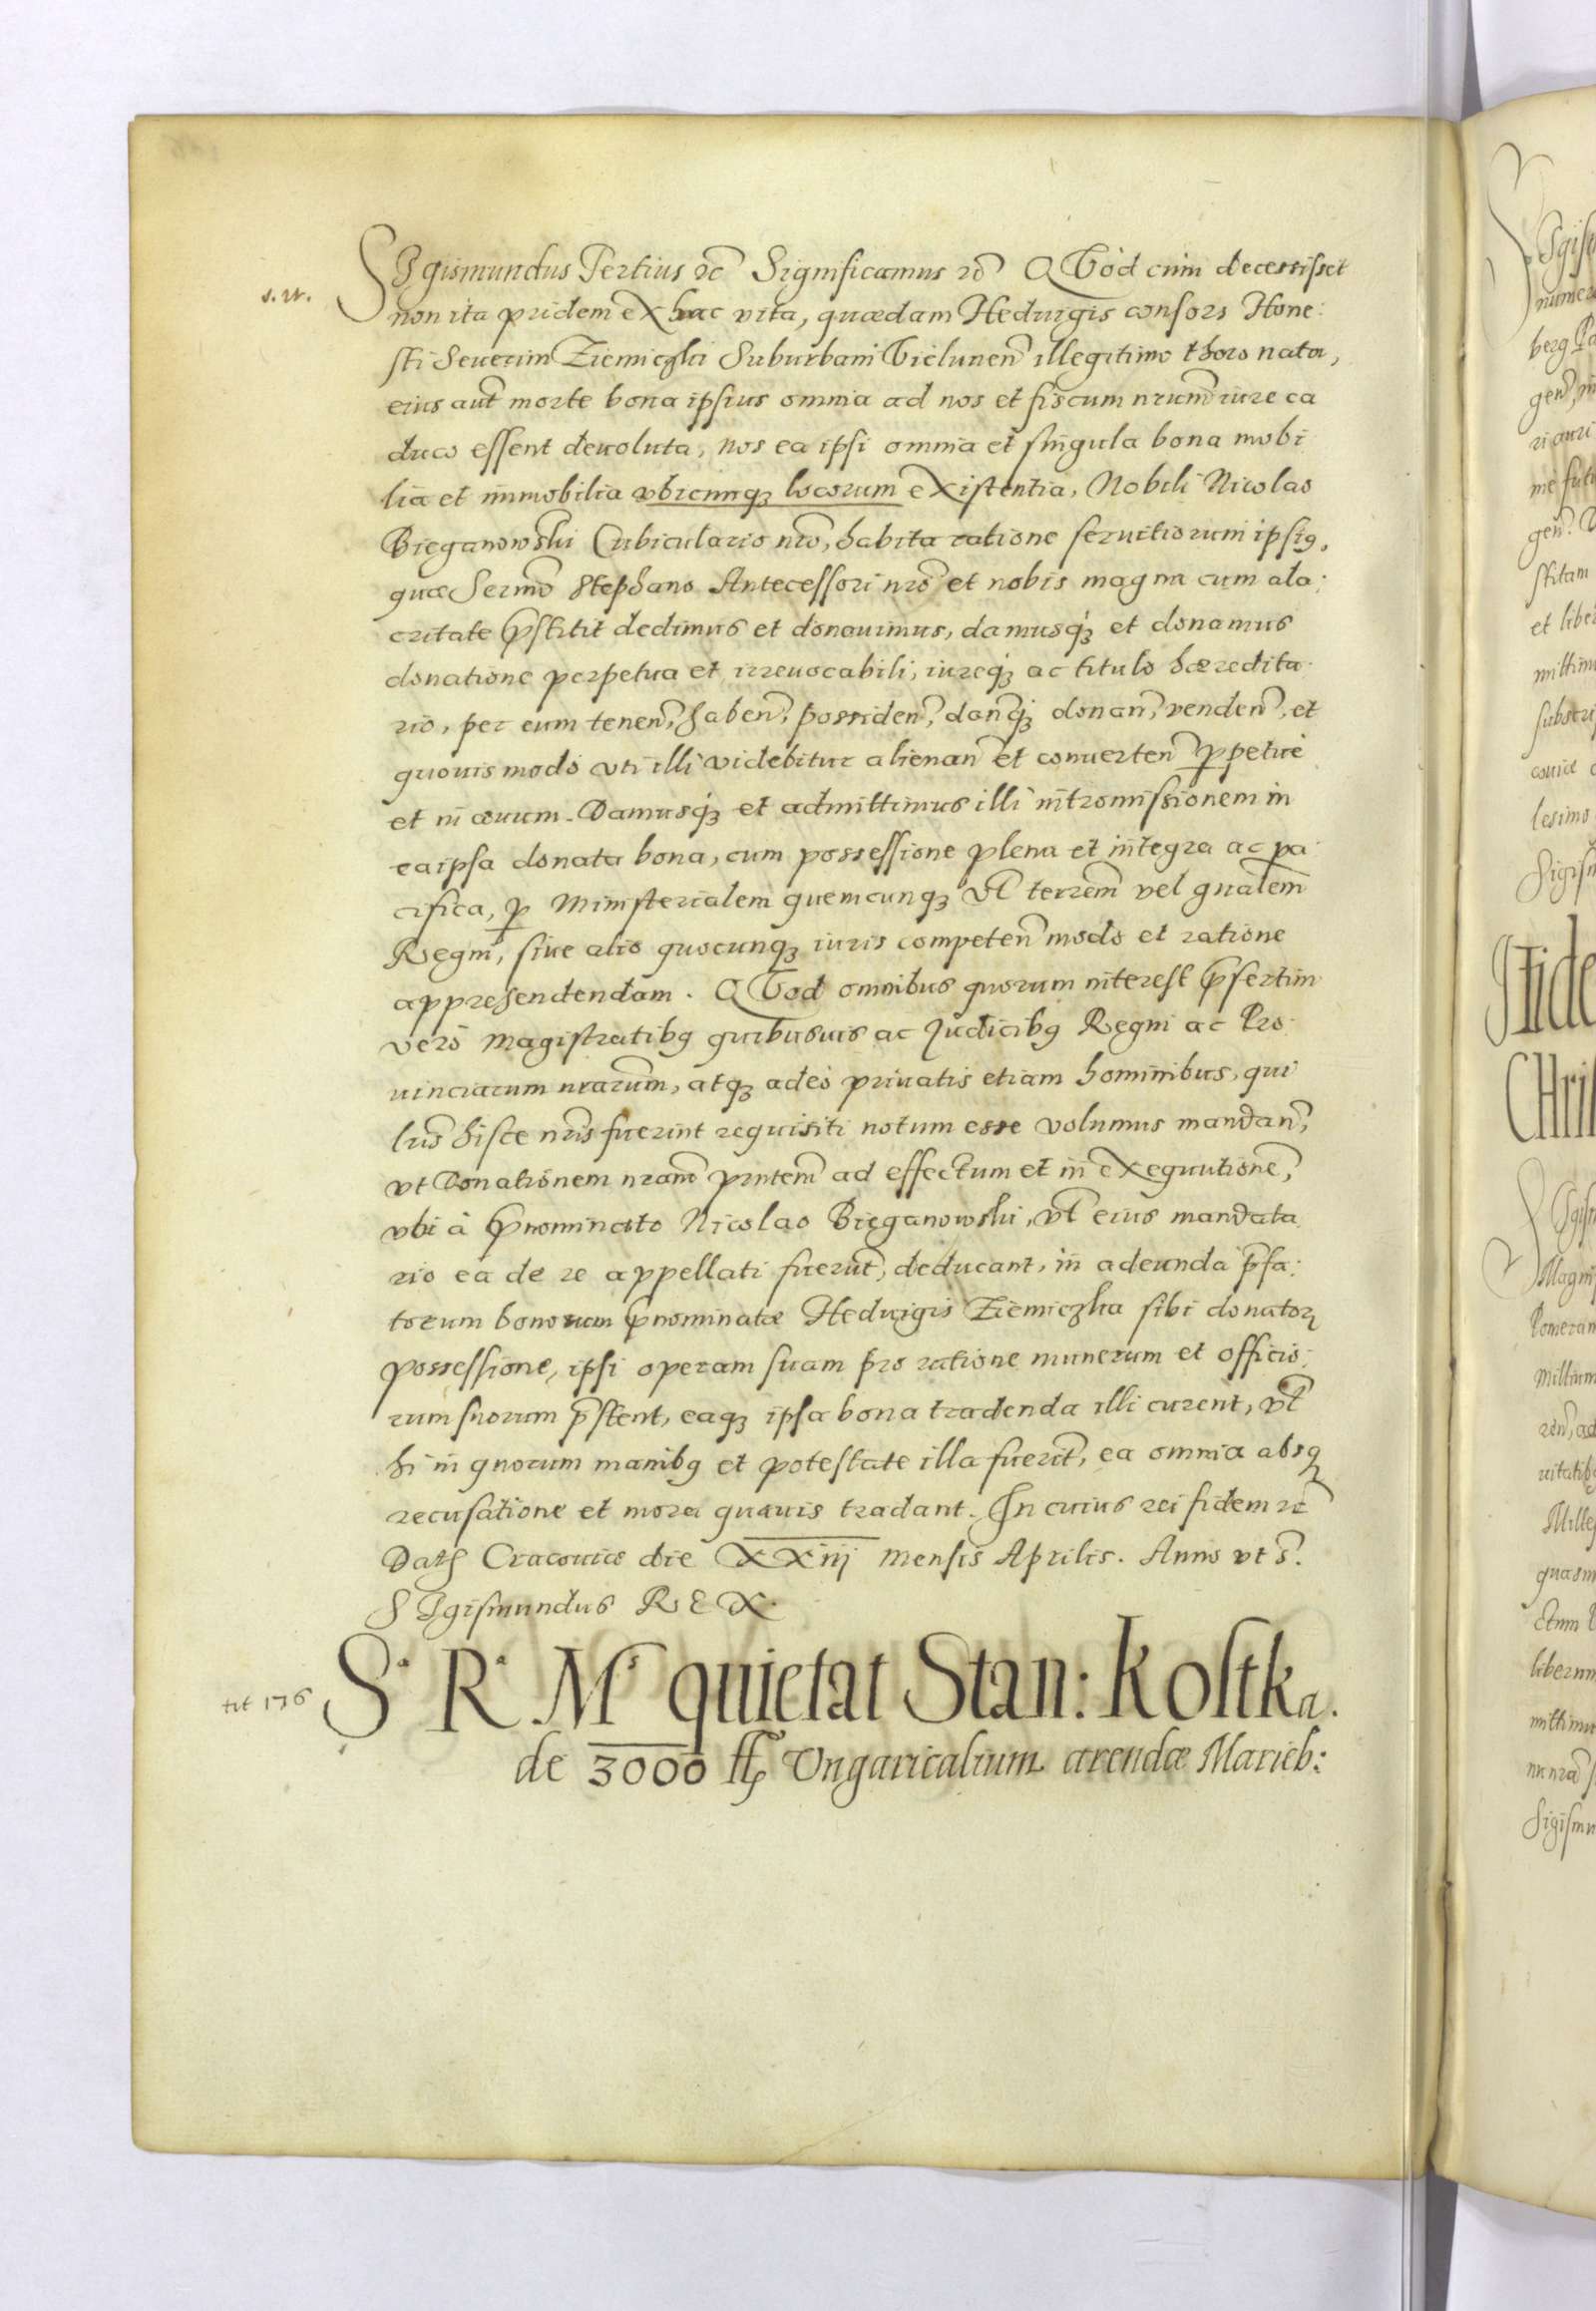 SIgismundus Tertius etc̃ Significamus etc̃ QVòd cùm decessisset
s. rt.
non ita pridem eX hac vita, quædam Heduigis consors Hone:
sti Seuerini Ziemięzka Suburbani Vielunen̄ illegitimo thoro nata,
eius aut̄ morte bona ipsius omnia ad nos et fiscum nrum̄ iure ca
duco essent deuoluta, nos ea ipsi omnia et singula bona mobi
lia et immobilia vbicunqꝫ locorum eXistentia, Nobili Nicolao
Bieganowski Cubiculario nr̄o, habita ratione seruitiorum ipsiꝰ,
quæ Serm̄o Stephano Antecessori nr̄o et nobis magna cum ala:
critate p̄stitit dedimus et donauimus, damusqꝫ et donamus
donatione perpetua et irreuocabili, iureqꝫ ac titulo hæredita:
rio, per eum tenen̄, haben̄, possiden̄, danqꝫ donan̄, venden̄, et
quouis modo vti illi videbitur alienan̄ et conuerten̄ ꝑpetuè
et in æuum. Damusqꝫ et admittimus illi intromissionem in
ea ipsa donata bona, cum possessione plena et integra ac pa
cifica, ꝑ Ministerialem quemcunqꝫ vl̄ terrem̄ vel gnalem̄
Regni, siue alio quocunqꝫ iuris competen̄ modo et ratione
apprehendendam. QVod omnibus quorum interest p̄sertim
verò Magistratibꝰ quibusuis ac Judicibꝰ Regni ac Pro:
uinciarum nrarum̄, atqꝫ adeò priuatis etiam hominibus, qui
lūs hisce nr̄is fuerint requisiti notum esse volumus mandan̄,
vt Donationem nram̄ pn̄tem̄ ad effectum et in eXequutionē,
vbi à p̄nominato Nicolao Bieganowski, vl̄ eius mandata
rio ea de re appellati fuerint̄, deducant, in adeunda p̄fa:
torum bonorum p̄nominatæ Heduigis Ziemięzka sibi donatoꝝ
possessione, ipsi operam suam pro ratione munerum et officio:
rum suorum p̄stent, eaqꝫ ipsa bona tradenda illi curent, vl̄
hi in quorum manibꝰ et potestate illa fuerit̄, ea omnia absqꝫ
recusatione et mora quauis tradant. In cuius rei fidem etc̄
Datꝭ Cracouiæ die XXiij Mensis Aprilis. Anno vt s̄.
SIgismundus REX.
tit 176
Sᵃ Rᵃ Mˢ quietat Stan: Kostka.
de 3000 ff Vngaricalium arendæ Marieb: